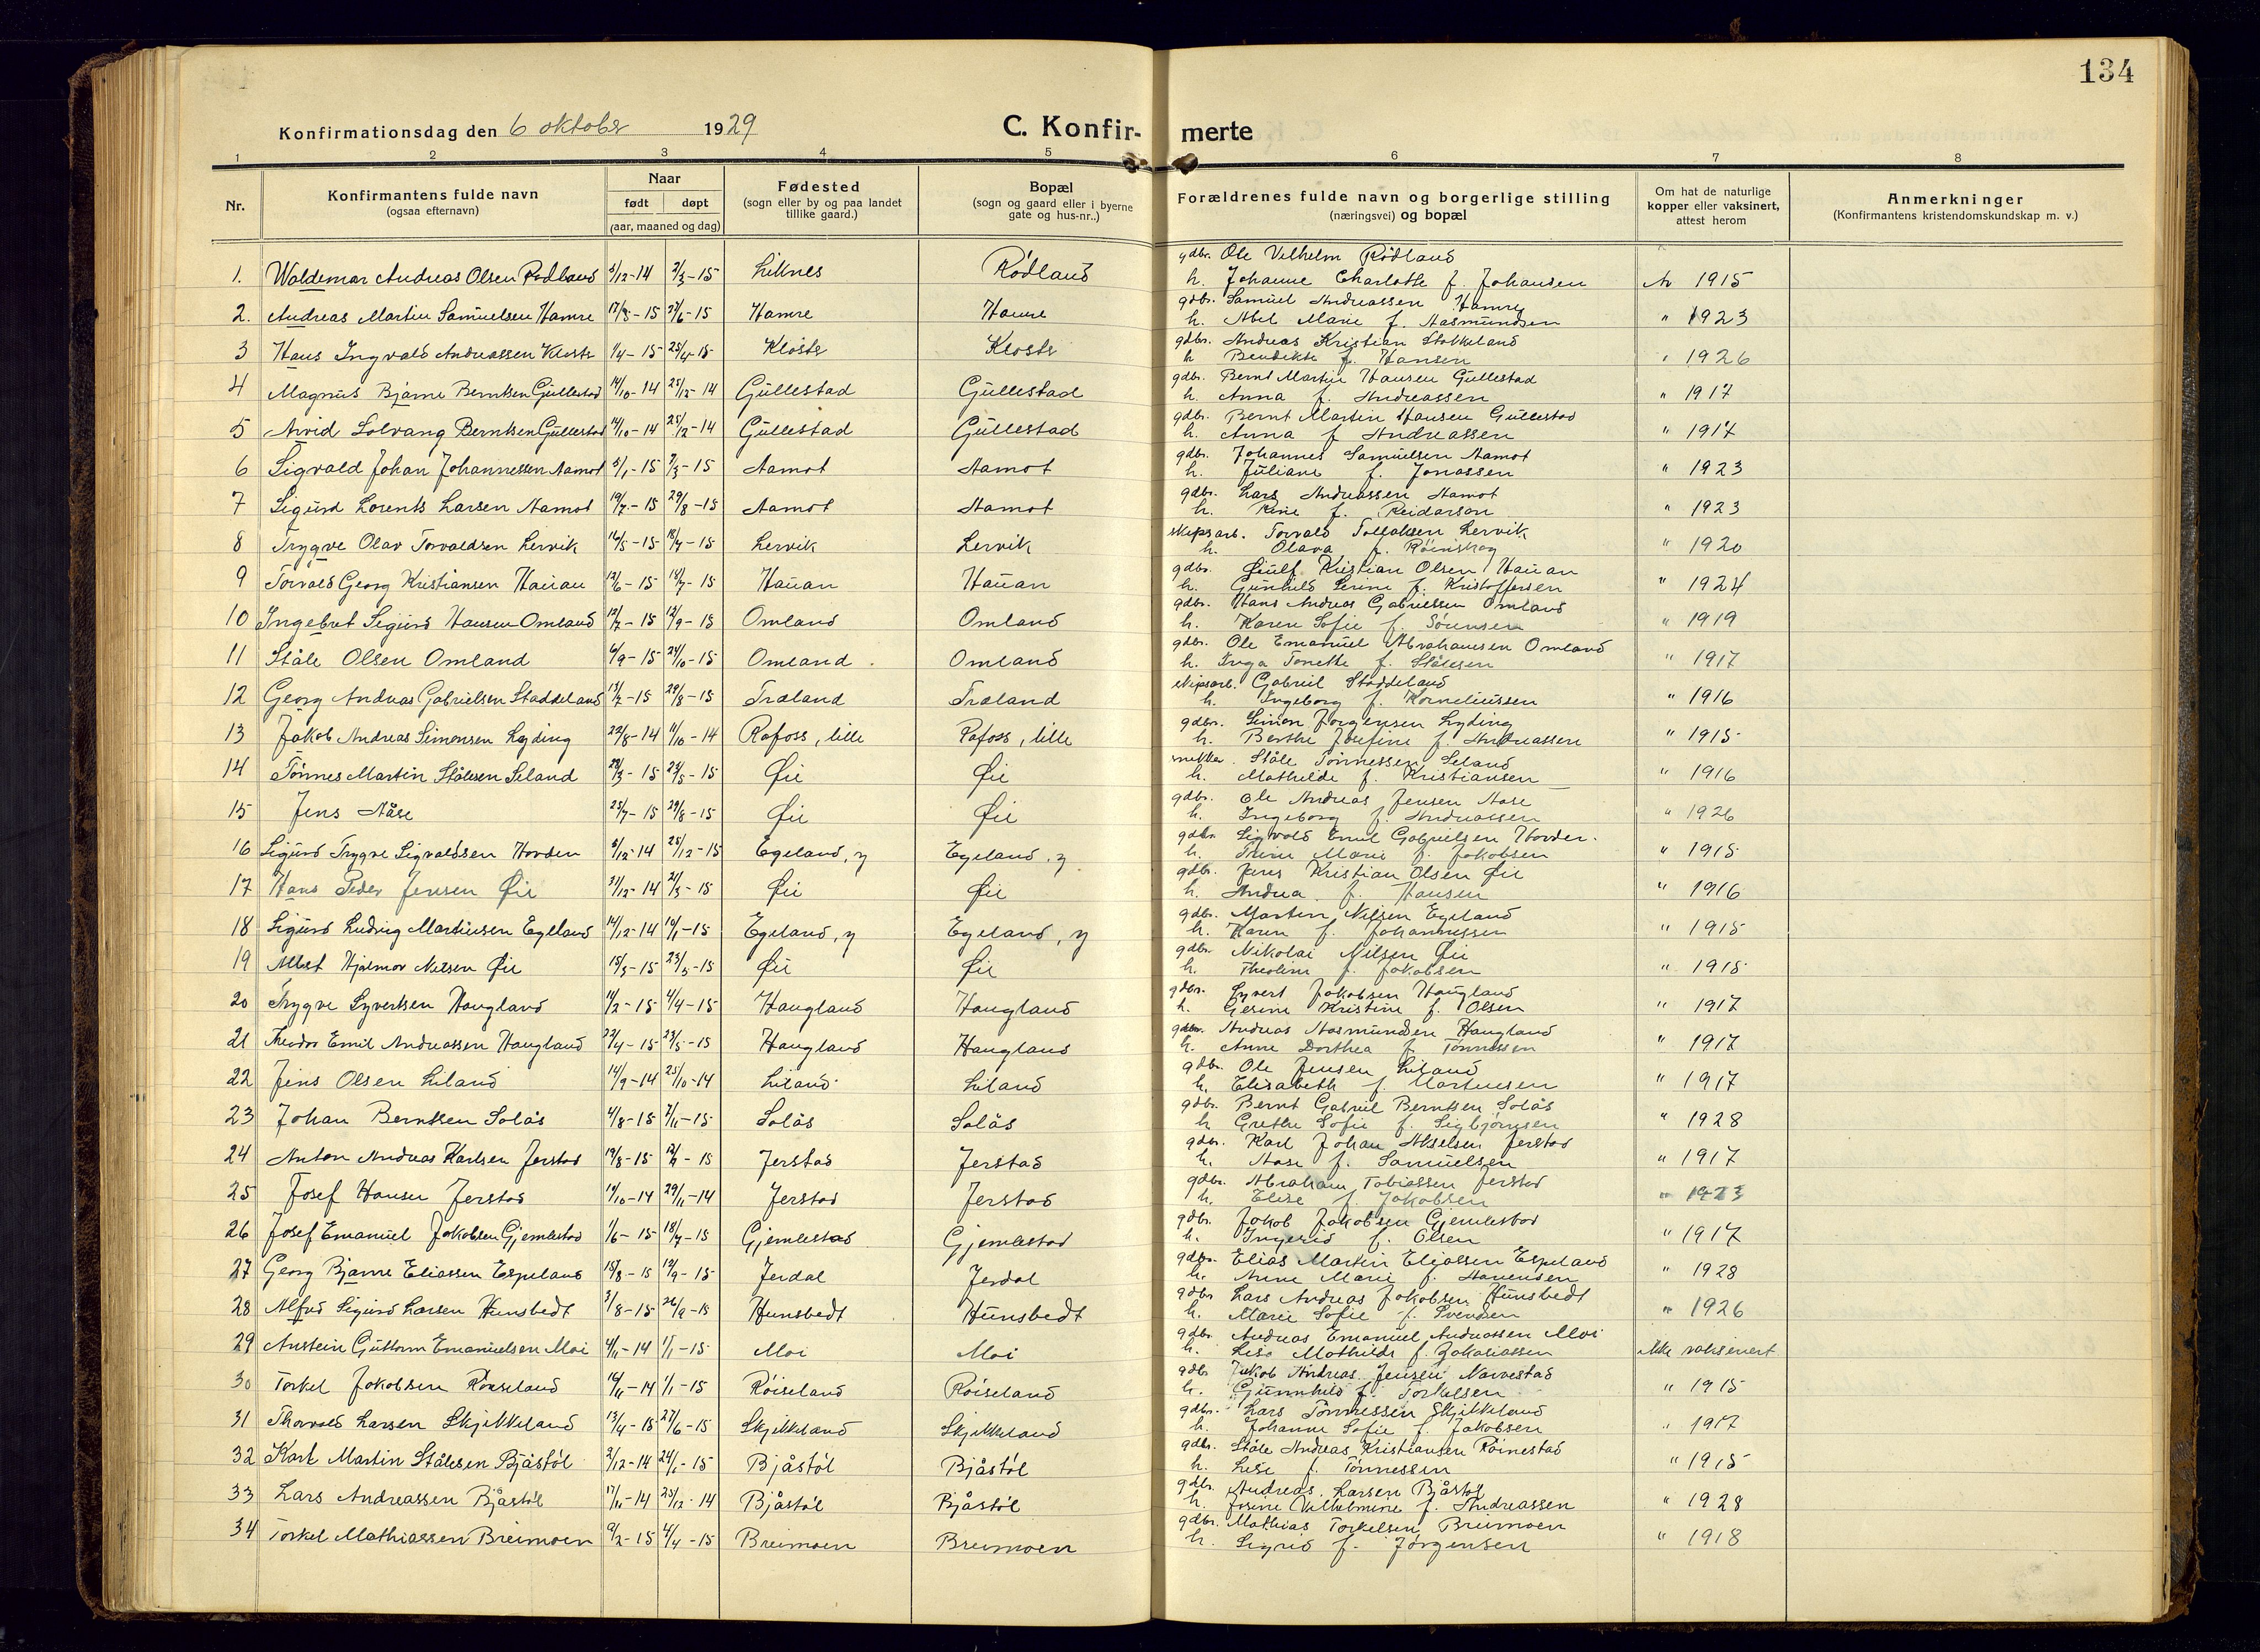 134
Konfirmationsdag den 6 oktober 1929
C. Konfir-merte
1 2 3 4 5 6 7 8
Nr.
Konfirmantens fulde navn
(ogsaa efternavn)
Naar
født døpt
(aar, maaned og dag)
Fødested
(sogn eller by og paa landet
tillike gaard.)
Bopæl
(sogn og gaard eller i byerne
gate og hus-nr..)
Forældrenes fulde navn og borgerlige stilling
(næringsvei) og bopæl
Om hat de naturlige
kopper eller vaksinert,
attest herom
Anmerkninger
(Konfirmantens kristendomskundskap m. v.)
1. Waldemar Andreas Olsen Rødland 5/12-14 7/3-15 Liknes Rødland gdbr. Ole Vilhelm Rødland
h. Johanne Charlotte f. Johansen 1915
2. Andreas Martin Samuelsen Hamre 17/5-15 27/6-15 Hamre Hamre gdbr. Samuel Andreassen Hamre
h. Abel Marie f. Aasmundsen " 1923
3 Hans Ingvald Andreassen Kloster 1/4-15 25/4-15 Kloster Kloster gdbr. Andreas Kristian Stolkeland
h Bendikte f. Hansen " 1926
4 Magnus Bjarne Berntsen Gullestad 14/10-14 25/12-14 Gullestad Gullestad gdbr. Bernt Martin Hansen Gullestad
h. Anna f. Andreassen " 1917
5 Arvid Solvang Berntsen Gullestad 14/10-14 25/12-14 Gullestad Gullestad gdbr. Bernt Martin Hansen Gullestad
h. Anna f Andreassen " 1917
6 Sigvald Johan Johannessen Aamot 3/1-15 7/3-15 Aamot Aamot gdbr. Johannes Samuelsen Aamot
h. Juliane f. Jonassen " 1923
7 Sigurd Lorents Larsen Aamot 19/7-15 29/8-15 Aamot Aamot gdbr. Lars Andreassen Aamot
h. Rine f. Reidarson " 1923
8 Trygve Olav Torvaldsen Lervik 16/5-15 18/7-15 Lervik Lervik skipsarb. Torvald Tollaksen Lervik
h. Olava f. Røinskog " 1920
9 Torvald Georg Kristiansen Hauan 12/6-15 18/7-15 Hauan Hauan gdbr. Kristian Olsen Hauan
h. Gunhild Serine f. Kristoffersen " 1924
10 Ingebret Sigurd Hansen Omland 12/7-15 12/9-15 Omland Omland gdbr. Hans Andreas Gabrielsen Omland
h. Karen Sofie f. Sørensen " 1919
11 Ståle Olsen Omland 6/9-15 24/10-15 Omland Omland gdbr. Ole Emanuel Abrahamsen Omland
h. Inga Tonette f. Stålesen " 1917
12 Georg Andreas Gabrielsen Staddeland 17/7-15 29/8-15 Træland Træland skipsarb. Gabriel Staddeland
h. Ingeborg f. Korneliussen " 1916
13 Jakob Andreas Simonsen Lyding 22/8-14 11/10-14 Rafoss, lille Rafoss, lille gdbr. Simon Jørgensen Lyding
h. Berthe Josefine f. Andreassen " 1915
14 Tønnes Martin Stålesen Seland 28/3-15 24/5-15 Øie Øie snekker. Ståle Tønnessen Seland
h. Mathilde f. Kristiansen " 1916
15 Jens Aåse 25/7-15 29/8-15 Øie Øie gdbr. Ole Andreas Jensen Aase
h. Ingeborg f. Andreassen " 1926
16 Sigurd Trygve Sigvaldsen Hovden 5/12-14 25/12-15 Egeland, y Egeland, y gdbr Sigvald Emil Gabrielsen Hovden.
h. Trine Marie f. Jakobsen " 1915
17 Hans Peder Jensen Øie 31/12-14 21/3-15 Øie Øie gdbr. Jens Kristian Olsen Øie
h. Andrea f. Hansen " 1916
18 Sigurd Ludvig Martinsen Egeland 14/12-14 10/1-15 Egeland, y Egeland, y gdbr. Martin Nilsen Egeland
h. Karen f. Johannessen " 1915
19 Albert Hjalmar Nilsen Øie 15/3-15 23/5-15 Øie Øie gdbr. Nikolai Nilsen Øie
h. Theoline f. Jakobsen " 1915
20 Trygve Syvertsen Haugland 11/2-15 4/4-15 Haugland Haugland gdbr. Syvert Jakobsen Haugland
h. Gesine Kristine f. Olsen " 1917
21 Theodor Emil Andreassen Haugland 22/4-15 23/5-15 Haugland Haugland gdbr. Andreas Aasmundsen Haugland
h. Anne Dorthea f Tønnessen " 1917
22 Jens Olsen Liland 14/9-14 25/10-14 Liland Liland gdbr. Ole Jensen Liland
h. Elisabeth f. Martinsen " 1917
23 Johan Berntsen Solås 4/8-15 7/11-15 Solås Solås gdbr. Bernt Gabriel Berntsen Solås
h Grethe Sofie f. Sigbjørnsen " 1928
24 Anton Andreas Karlsen Jerstad 19/8-15 12/9-15 Jerstad Jerstad gdbr. Karl Johan Akselsen Jerstad
h. Aase f. Samuelsen " 1917
25 Josef Hansen Jerstad 14/10-14 29/11-14 Jerstad Jerstad gdbr. Abraham Tobiassen Jerstad
h. Elise f. Jakobsen " 1923
26 Josef Emanuel Jakobsen Gjemlestad 1/6-15 18/7-15 Gjemlestad Gjemlestad gdbr. Jakob Jakobsen Gjemlestad
h. Ingerid f. Olsen " 1917
27 Georg Bjarne Eliassen Espeland 15/8-15 19/9-15 Jerdal Jerdal gdbr. Elias Martin Eliassen Espeland
h. Anne Marie f. " 1928
28 Alfred Sigurd Larsen Hunsbedt 3/8-15 26/9-15 Hunsbedt Hunsbedt gdbr Lars Andreas Jakobsen Hunsbedt
h. Marie Sofie f. Svendsen " 1926
29 Anstein Guttorm Emanuelsen Moi 4/11-14 1/1-15 Moi Moi gdbr. Andreas Emanuel Andreassen Moi
h. Lise Mathilde f. Zakariassen ikke vaksinert
30 Torkel Jakobsen Røiseland 10/11-14 1/1-15 Røiseland Røiseland gdbr Jakob Andreas Jensen Narvestad
h. Gunnhild f. Torkelsen " 1915
31 Thorvald Larsen Skjekkeland 13/4-15 27/6-15 Skjekkeland Skjekkeland gdbr. Lars Tønnessen Skjekkeland
h. Johanne Sofie f. Jakobsen " 1917
32 Karl Martin Stålesen Bjåstøl 2/12-14 24/1-15 Bjåstøl Bjåstøl gdbr. Ståle Andreas Kristiansen Røinestad
h. Lise f. Tønnessen " 1915
33 Lars Andreassen Bjåstøl 17/11-14 25/12-14 Bjåstøl Bjåstøl gdbr. Andreas Larsen Bjåstøl
h. Josine Vilhelmine f. Andreassen " 1928
34 Torkel Mathiassen Breimoen 9/2-15 4/4-15 Breimoen Breimoen gdbr. Mathias Torkelsen Breimoen
h. Sigrid f. Jørgensen " 1918